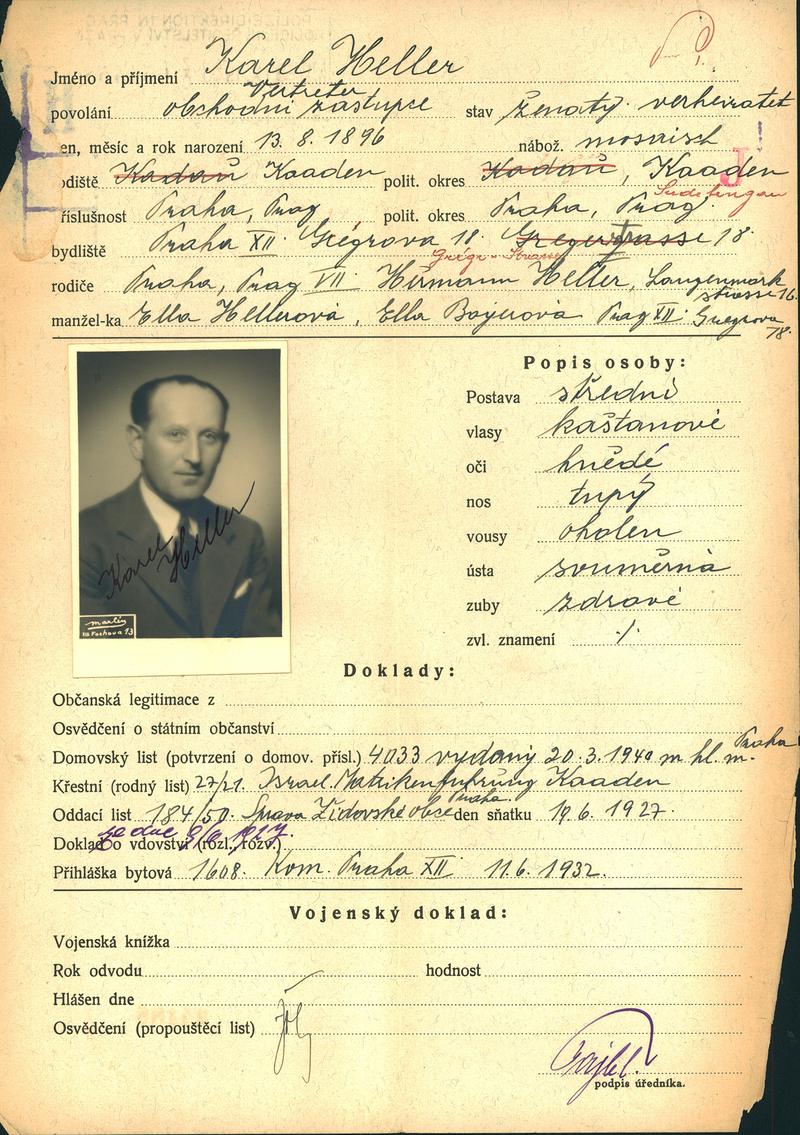 Jméno a příjmení Karel Heller
Vertreter
povolání obchodní zástupce stav ženatý. verheiratet
en, měsíc a rok narození 13. 8. 1896 nábož. mosaisch
J!
odiště Kadaň Kaaden polit. okres Kadaň, Kaaden
Sudetengau
říslušnost Praha, Prag polit. okres Praha, Prag
bydliště Praha XII. Grégrova 18. Gregerstrasse 18
Grégr-Strasse
rodiče Praha, Prag VII Hermann Heller, Langenmark
strasse 16.
manžel-ka Ella Hellerová, Ella Bayerová Prag XII. Gregrova
18.
Popis osoby:
Postava střední
vlasy kaštanové
oči hnědé
nos tupý
vousy oholen
ústa souměrná
zuby zdravé
zvl. znamení ./.
Karel Heller
marlin
Fochova 93
Doklady:
Občanská legitimace z
Osvědčení o státním občanství
Domovský list (potvrzení o domov. přísl.) 4033 vydaný 20. 3. 1940 m hl. m. Praha
Křestní (rodný list) 27/21. Israel. Matrikenführung Kaaden
Oddací list 184/50. Správa Židovské obce Praha. den sňatku 19. 6. 1927.
ze dne 9/6 1927.
Doklad o vdovství (rozl., rozv.)
Přihláška bytová 1608. Kom. Praha XII 11. 6. 1932.
Vojenský doklad:
Vojenská knížka
Rok odvodu hodnost
Hlášen dne
Osvědčení (propouštěcí list)
podpis úředníka.